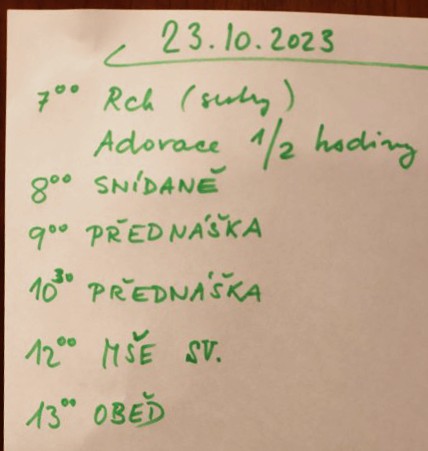 23.10.2023
7⁰⁰ Rch (suchý)
Adorace 1/2 hodiny
8⁰⁰ SNÍDANĚ
9⁰⁰ PŘEDNÁŠKA
10³⁰ PŘEDNÁŠKA
12⁰⁰ MŠE SV.
13⁰⁰ OBĚD